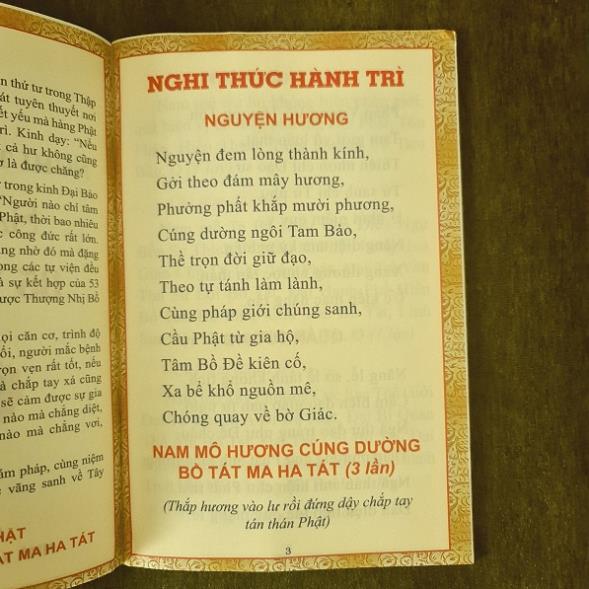 n thứ tư trong Thập
át tuyên thuyết nơi
ết yếu mà hàng Phật
rì. Kinh dạy: “Nếu
cả hư không cũng
ơ là được chăng?
trong kinh Đại Bảo
“Người nào chí tâm
Phật, thời bao nhiêu
công đức rất lớn.
ng nhờ đó mà đặng
ong các tự viện đều
à sự kết hợp của 53
ược Thượng Nhị Bồ
ọi căn cơ, trình độ
ổi, người mắc bệnh
rọn vẹn rất tốt, nếu
à chắp tay xá cũng
sẽ cảm được sự gia
nào mà chẳng diệt,
nào mà chẳng vơi,
ám pháp, cùng niệm
vãng sanh về Tây
HẬT
ÁT MA HA TÁT
NGHI THỨC HÀNH TRÌ
NGUYỆN HƯƠNG
Nguyện đem lòng thành kính,
Gởi theo đám mây hương,
Phưởng phất khắp mười phương,
Cúng dường ngôi Tam Bảo,
Thề trọn đời giữ đạo,
Theo tự tánh làm lành,
Cùng pháp giới chúng sanh,
Cầu Phật từ gia hộ,
Tâm Bồ Đề kiên cố,
Xa bể khổ nguồn mê,
Chóng quay về bờ Giác.
NAM MÔ HƯƠNG CÚNG DƯỜNG
BỒ TÁT MA HA TÁT (3 lần)
(Thắp hương vào lư rồi đứng dậy chắp tay
tán thán Phật)
3